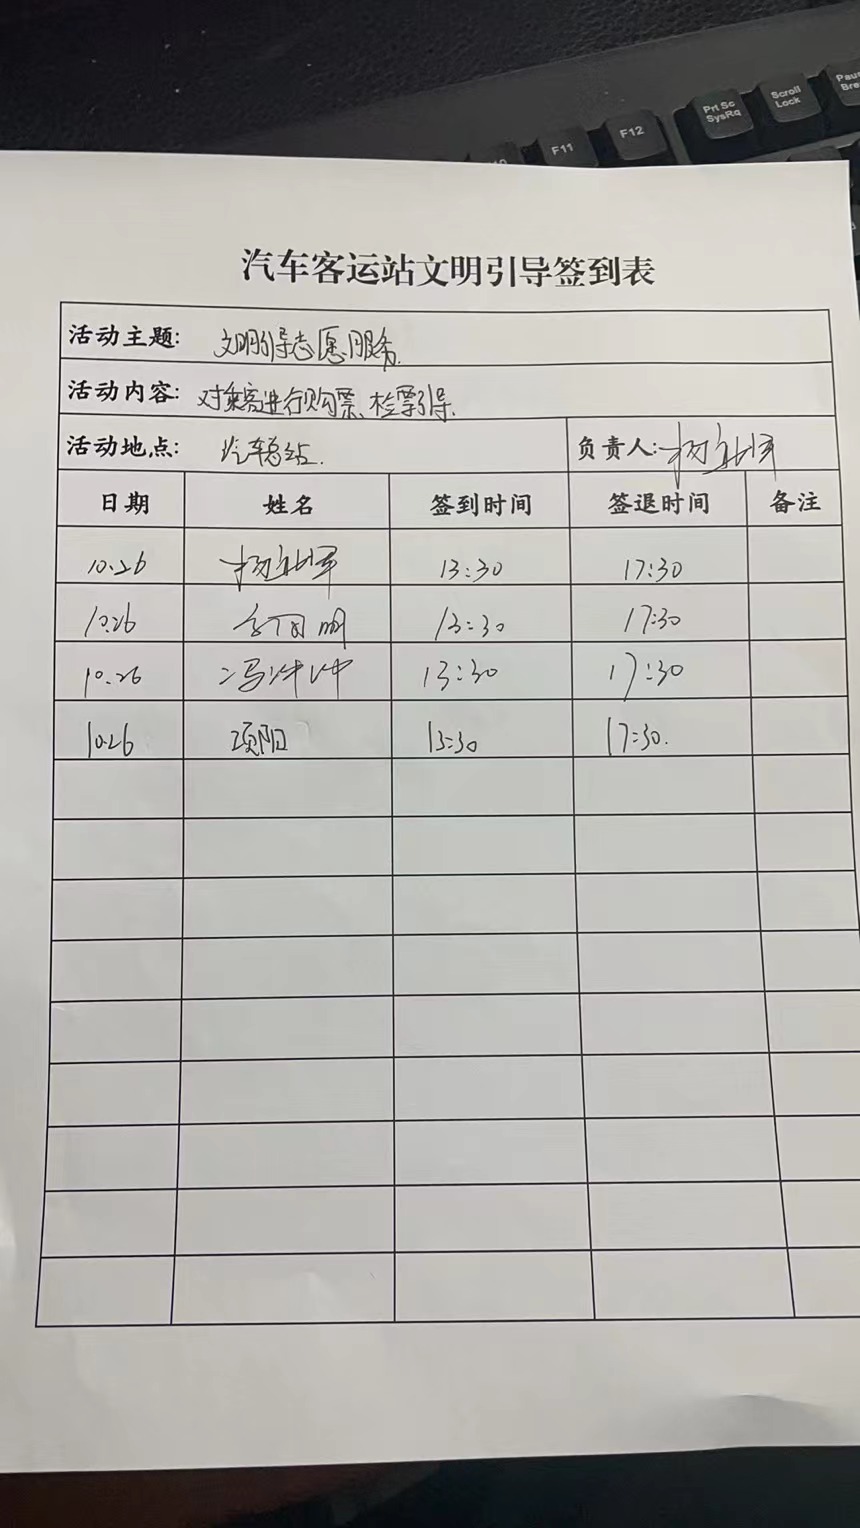 Prt Sc
SysRq
Scroll
Lock
F11
F12
汽车客运站文明引导签到表
活动主题: 文明引导志愿服务.
活动内容: 对乘客进行购票、检票引导.
活动地点: 汽车总站. 负责人: 杨
日期 姓名 签到时间 签退时间 备注
10.26 杨 13:30 17:30
10.26 明 13:30 17:30
10.26 冯冲冲 13:30 17:30
10.26 项阳 13:30 17:30.